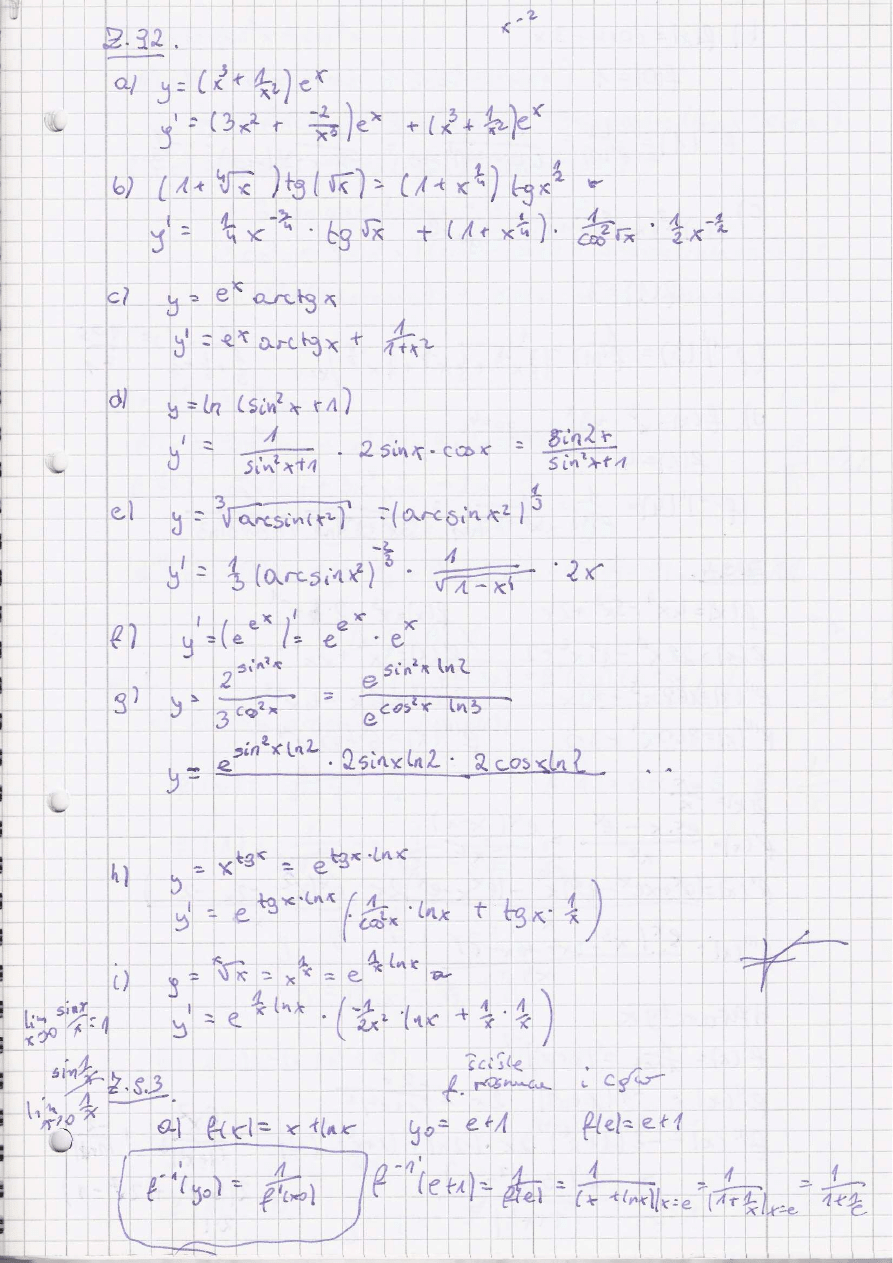 x⁻²
Z. 9.2.
a) y = (x³ + 1/x²) eˣ
y' = (3x² + -2/x³) eˣ + (x³ + 1/x²) eˣ
b) (1 + ⁴√x) tg(√x) = (1 + x^{1/4}) tg x^{1/2}
y' = 1/4 x^{-3/4} · tg √x + (1 + x^{1/4}) · 1/cos²√x · 1/2 x^{-1/2}
c) y = eˣ arctg x
y' = eˣ arctg x + 1/1+x²
d) y = ln (sin²x + 1)
y' = 1/sin²x+1 · 2 sin x · cos x = sin2x/sin²x+1
e) y = ³√arcsin(x²) = (arcsin x²)^{1/3}
y' = 1/3 (arcsin x²)^{-2/3} · 1/√1-x⁴ · 2x
f) y' = (e^{e^x})' = e^{e^x} · eˣ
g) y = 2^{sin²x}/3^{cos²x} = e^{sin²x ln2}/e^{cos²x ln3}
y = e^{sin²x ln2} · 2 sin x ln2 · 2 cos x ln2 ..
h) y = x^{tg x} = e^{tg x · ln x}
y' = e^{tg x · ln x} (· 1/cos²x · ln x + tg x · 1/x)
i) y = ˣ√x = x^{1/x} = e^{1/x ln x}
y' = e^{1/x ln x} · (-1/2x² · ln x + 1/x · 1/x)
lim x→0 sin x/x = 1
lim x→0 sin 1/x / 1/x
Z. 9.3.
ściśle
f. rosnąca i ciągła
a) f(x) = x + ln x y₀ = e+1 f(e) = e+1
f⁻¹'(y₀) = 1/f'(x₀) f⁻¹'(e+1) = 1/f'(e) = 1/(x + ln x)|x=e = 1/(1+1/x)|x=e = 1/1+1/e